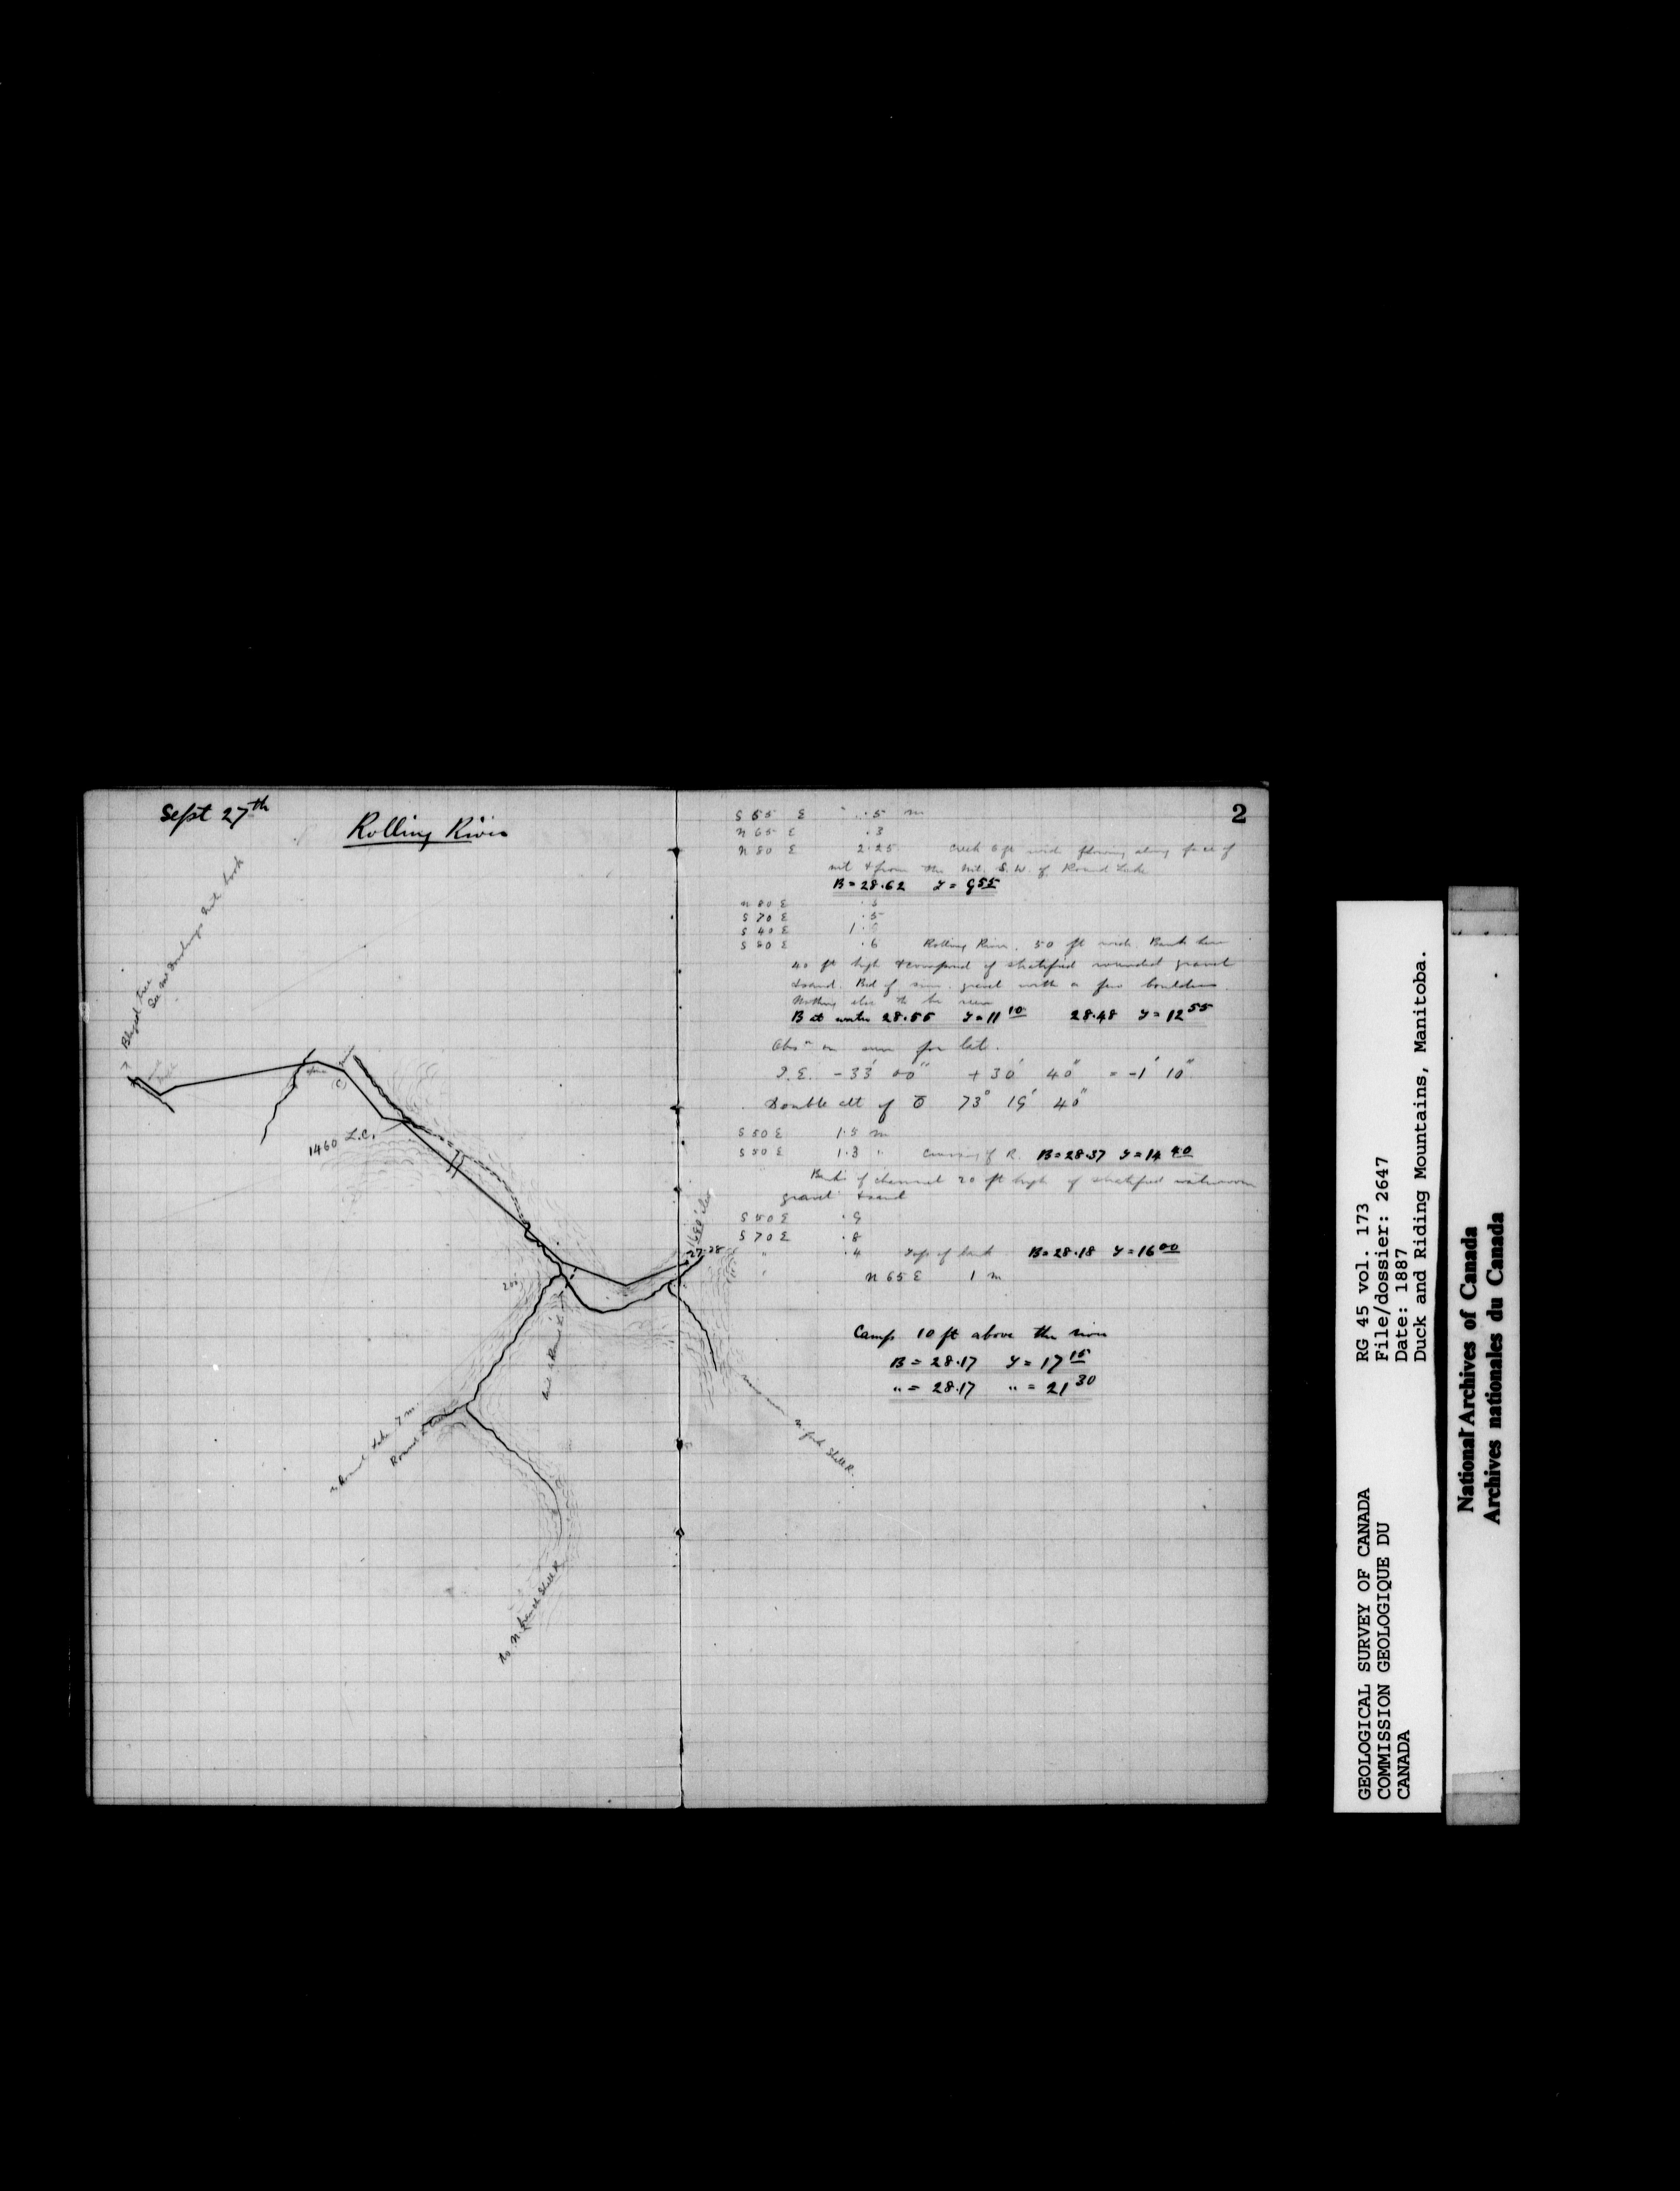 Sept 27th
Rolling River
Blazed tree
See Mr Dowlings note book
1460 L.C.
200
27-28
to Round Lake 7 m.
N. fork Shell R.
to N. branch Shell R
2
S 55 E .5 m
N 65 E .3
N 80 E 2.25 Creek 6 ft wide flowing along face of
mt & from the mt. S.W. of Round Lake
B = 28.62 T = 9 55
N 80 E .5
S 70 E .5
S 40 E 1.
S 80 E .6 Rolling River. 50 ft wide. Bank here
40 ft high & composed of stratified rounded gravel
& sand. Bed of riv. gravel with a few boulders.
Nothing else to be seen
B at water 28.55 T = 11 10 28.48 T = 12 55
Obsn on sun for lat.
I.E. - 33' 00" + 30' 40" = -1' 10"
Double alt of 73° 19' 40"
S 50 E 1.5 m
S 50 E 1.3 " Crossing of R. B = 28.37 T = 14 40
Banks of channel 20 ft high of stratified waterworn
gravel & sand
S 50 E .9
S 70 E .8
" .4 Top of bank B = 28.18 T = 16 00
N 65 E 1 m
Camp 10 ft above the river
B = 28.17 T = 17 15
" = 28.17 " = 21 30
GEOLOGICAL SURVEY OF CANADA RG 45 vol. 173
COMMISSION GEOLOGIQUE DU File/dossier: 2647
CANADA Date: 1887
Duck and Riding Mountains, Manitoba.
National Archives of Canada
Archives nationales du Canada